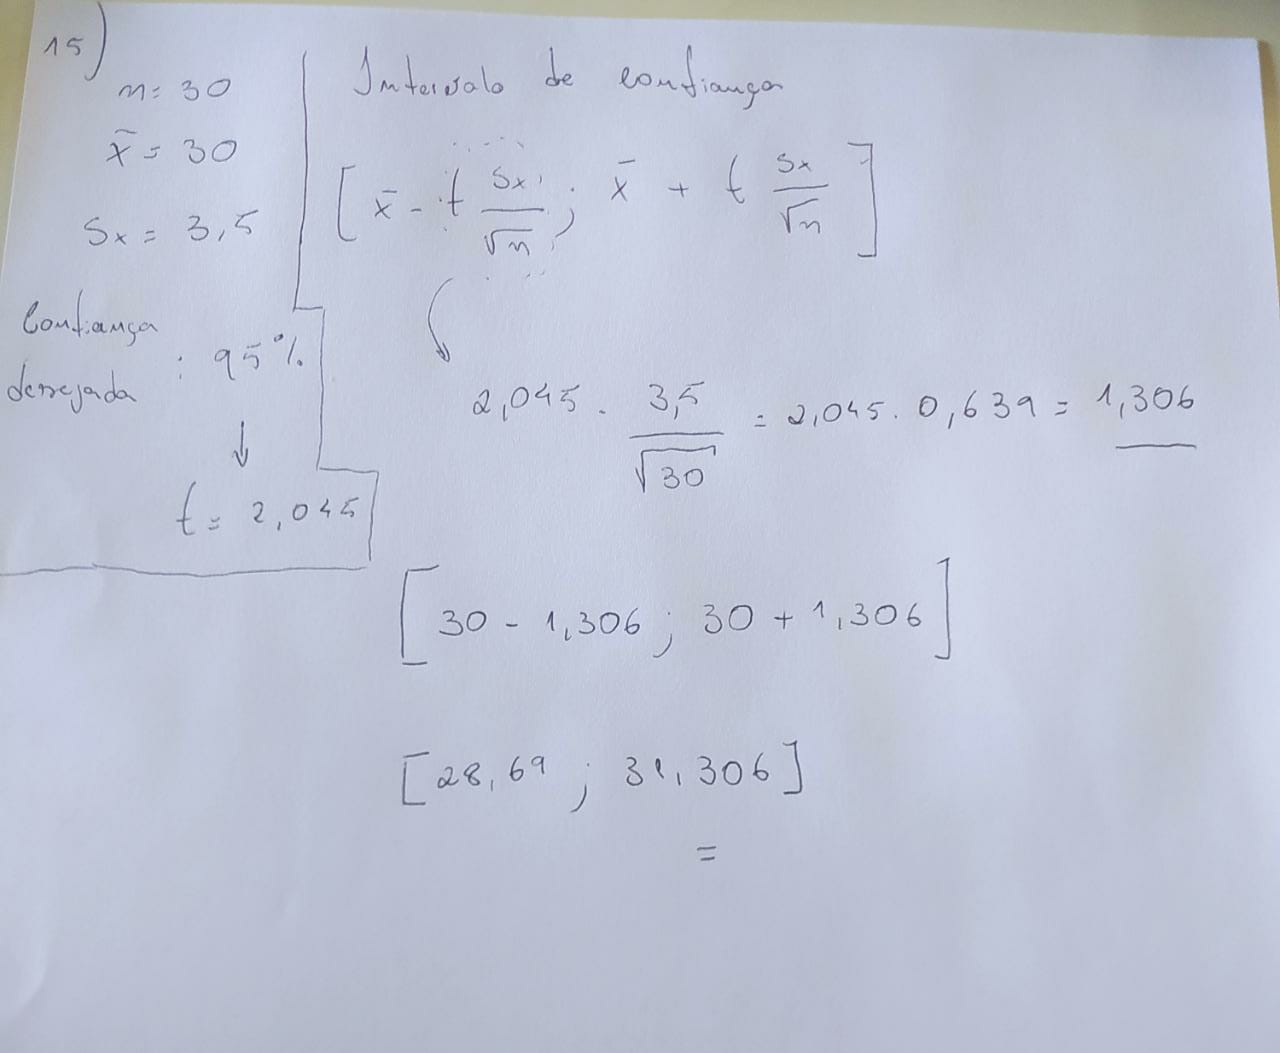 15)
n = 30
x̄ = 30
Sx = 3,5
Confiança
desejada : 95%
↓
t = 2,045
Intervalo de confiança
[x̄ - t Sx/√n ; x̄ + t Sx/√n]
2,045 . 3,5/√30 = 2,045 . 0,639 = 1,306
[30 - 1,306 ; 30 + 1,306]
[28,69 ; 31,306]
=